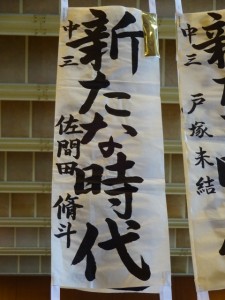 中三
新たな時代
佐間田脩斗
中三
新たな時代
戸塚未結